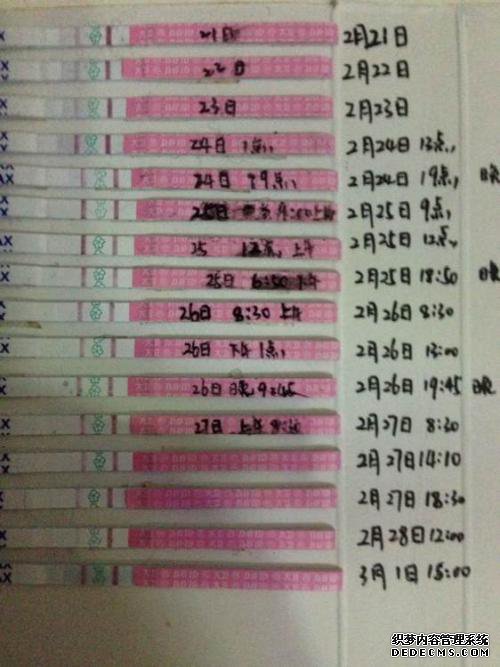 21日 2月21日
22日 2月22日
23日 2月23日
24日 1点 2月24日 13点
24日 下9点 2月24日 19点 晚
25日 9:00上午 2月25日 9点
25 12点 上午 2月25日 12点
25日 6:50下午 2月25日 18:50 晚
26日 8:30 上午 2月26日 8:30
26日 下午1点 2月26日 13:00
26日 晚9:45 2月26日 19:45 晚
27日 上午 8:30 2月27日 8:30
2月27日14:10
2月27日 18:30
2月28日12:00
3月1日 15:00
织梦内容管理系统
DEDECMS.COM